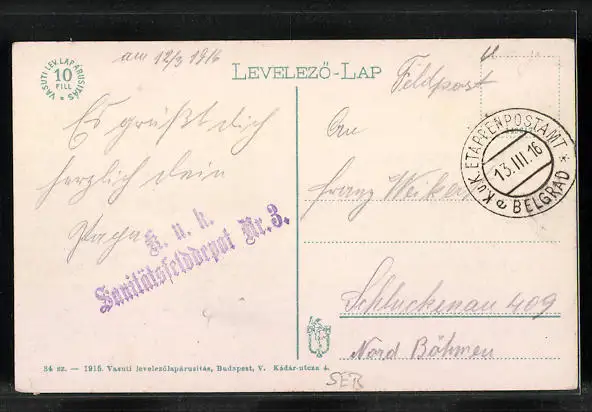 VASUTI LEV. LAP ÁRUSITÁS
10
FILL
am 12/3 1916
LEVELEZŐ-LAP
Feldpost
Es grüßt dich
herzlich dein
K. u. k.
Sanitätsfelddepot Nr. 3.
An
Franz
Schluckenau 409
Nord Böhmen
K.u.K. ETAPPENPOSTAMT
13.III.16
BELGRAD
34 sz. — 1915. Vasuti levelezőlapárusitás, Budapest, V. Kádár-utcza 4.
SER